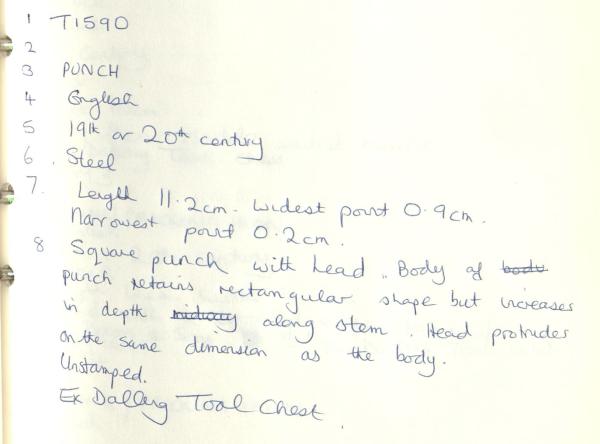 1 T1590
2
3 PUNCH
4 English
5 19th or 20th century
6. Steel
7. Length 11.2cm. Widest point 0.9cm.
Narrowest point 0.2cm.
8 Square punch with head. Body of body
punch retains rectangular shape but increases
in depth midway along stem. Head protrudes
on the same dimension as the body.
Unstamped.
Ex Tool Chest.